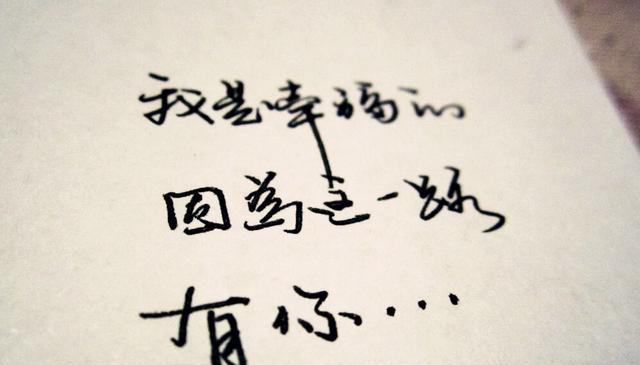 我是幸福的
因為这一路
有你...